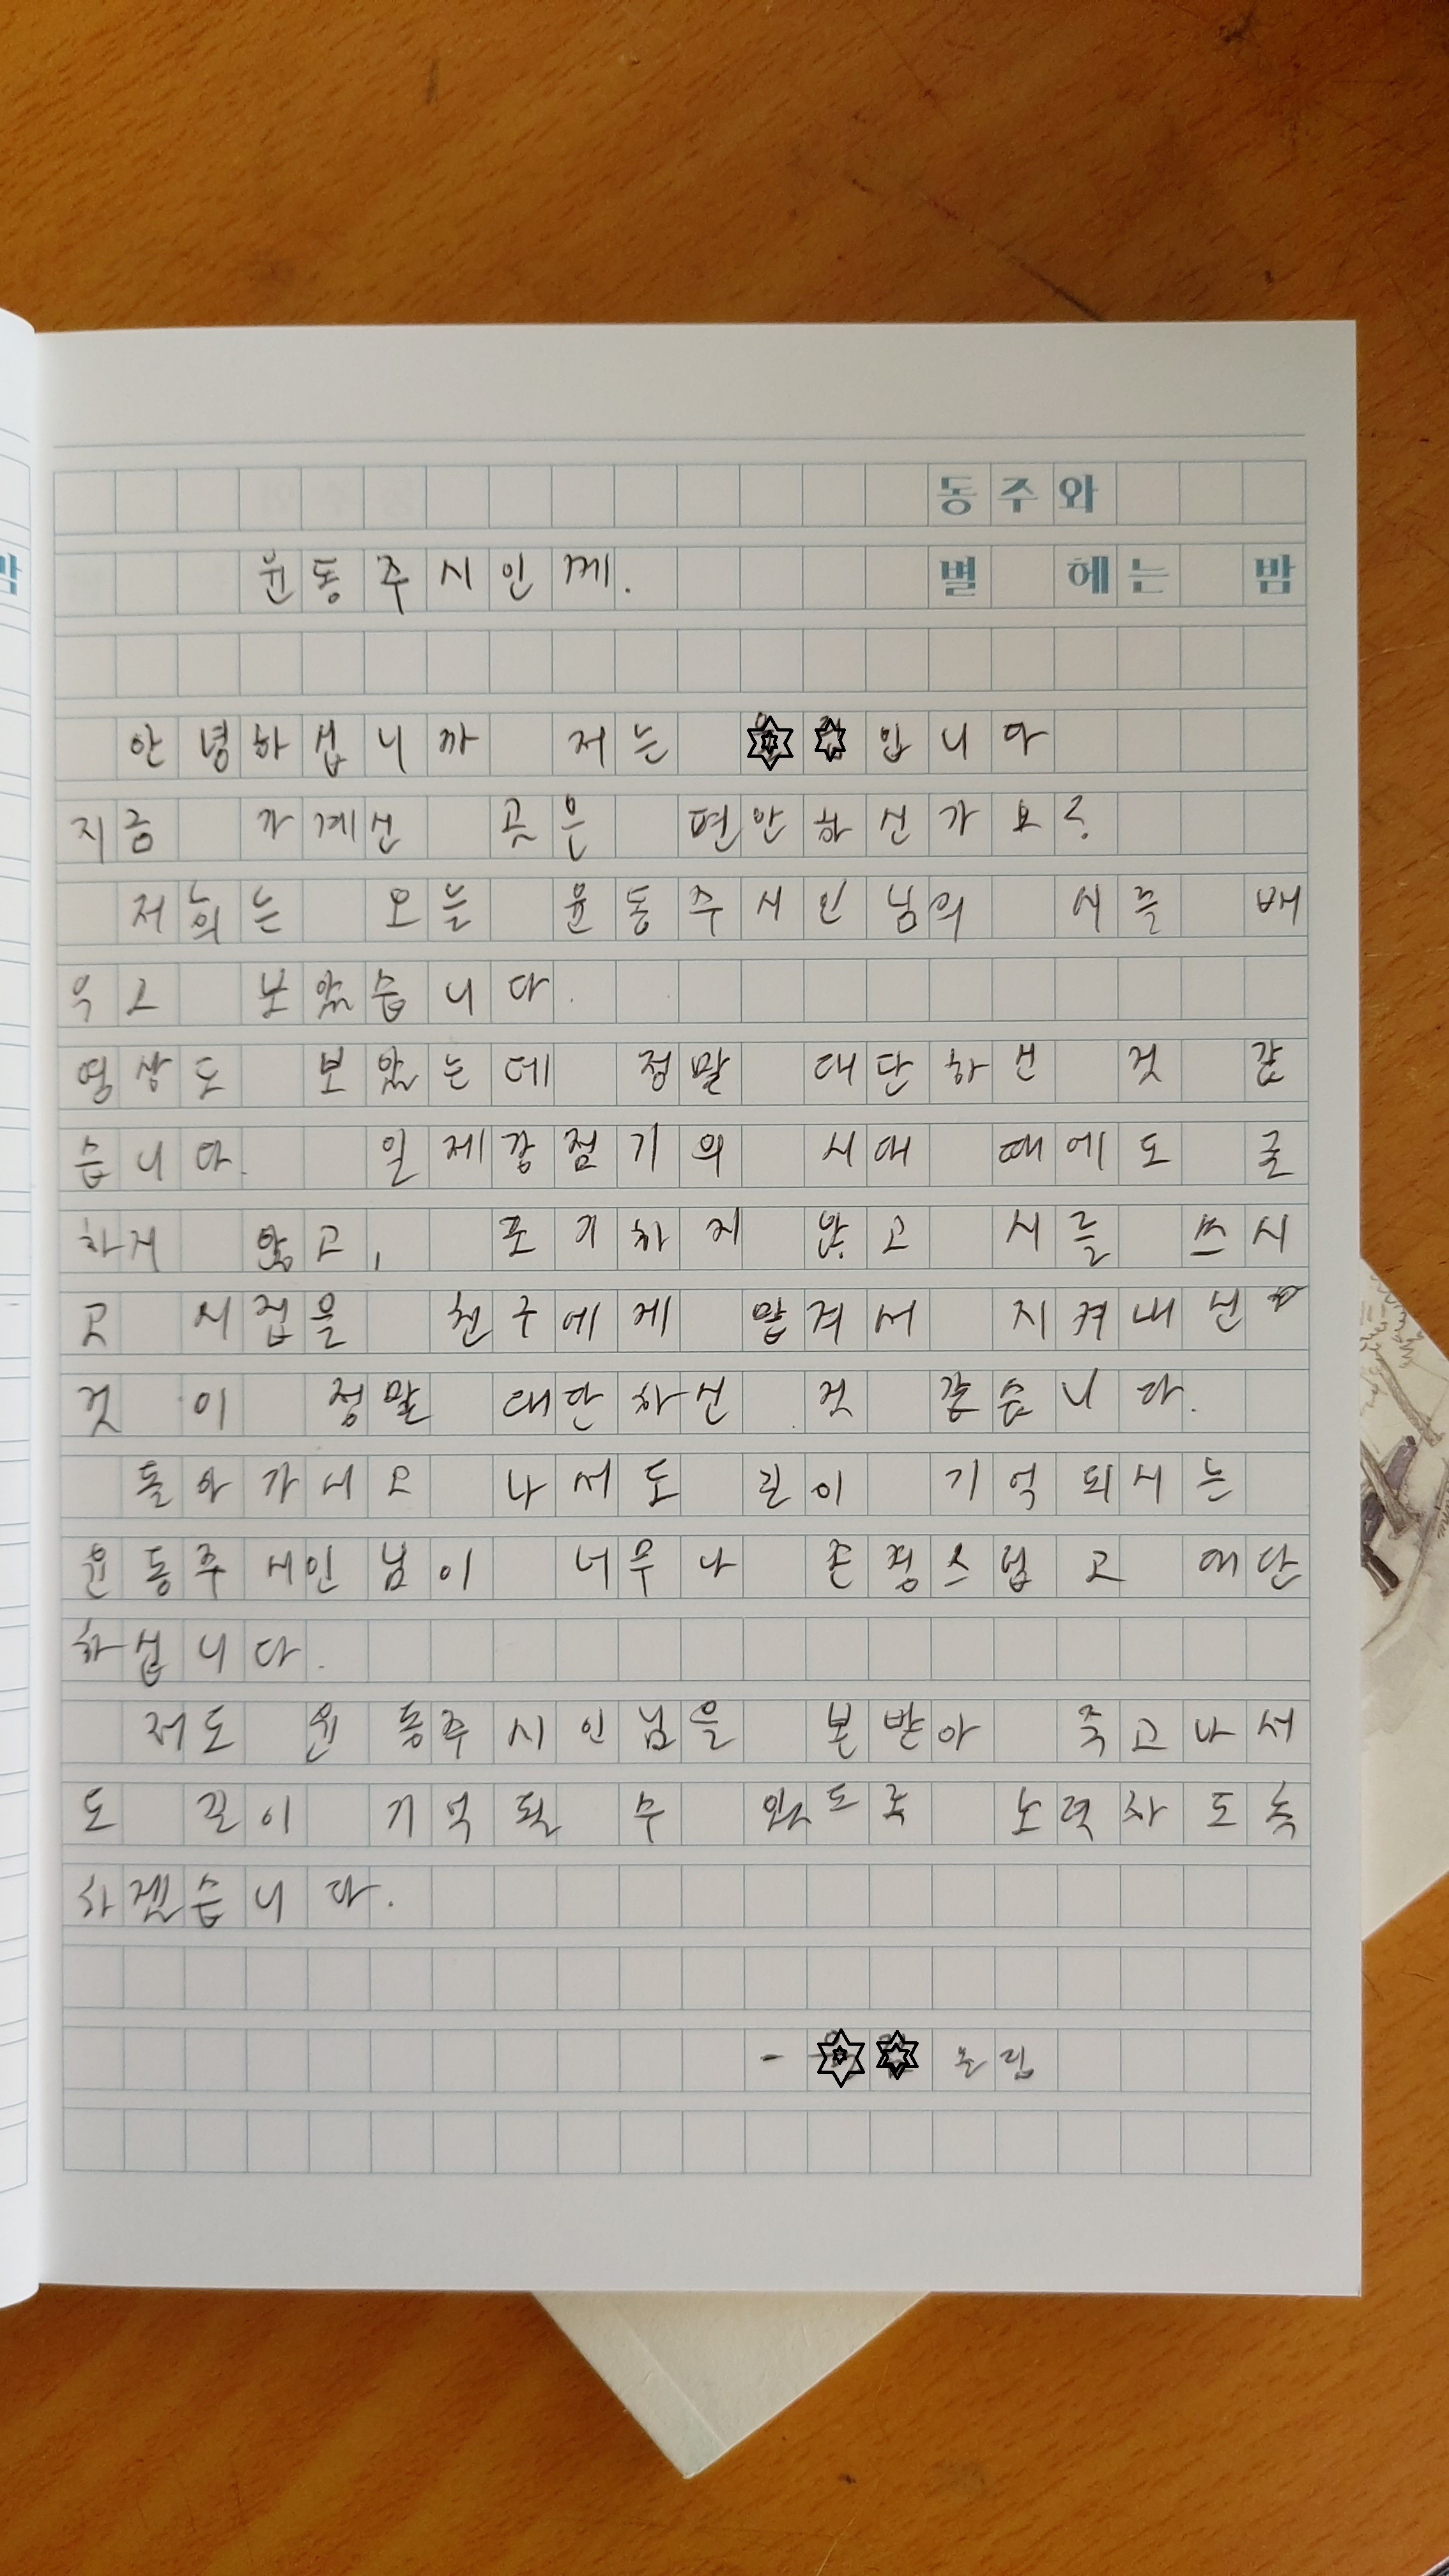 동주와
윤동주시인께.
별 헤는 밤
안녕하십니까 저는 입니다
지금 가계신 곳은 편안하신가요?
저희는 오늘 윤동주시인님의 시를 배
우고 보았습니다.
영상도 보았는데 정말 대단하신 것 같
습니다. 일제강점기의 시대 때에도 굴
하지 않고, 포기하지 않고 시를 쓰시
고 시집을 친구에게 맡겨서 지켜내신
것이 정말 대단하신 것 같습니다.
돌아가시고 나서도 길이 기억되시는
윤동주시인님이 너무나 존경스럽고 대단
하십니다.
저도 윤동주시인님을 본받아 죽고나서
도 길이 기억될 수 있도록 노력하도록
하겠습니다.
- 올림
밤